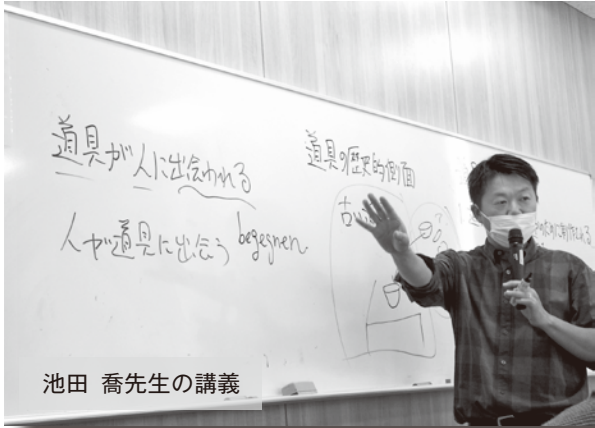 道具が人に出会われる
人が道具に出会う begegnen
道具の歴史的側面
池田 喬先生の講義